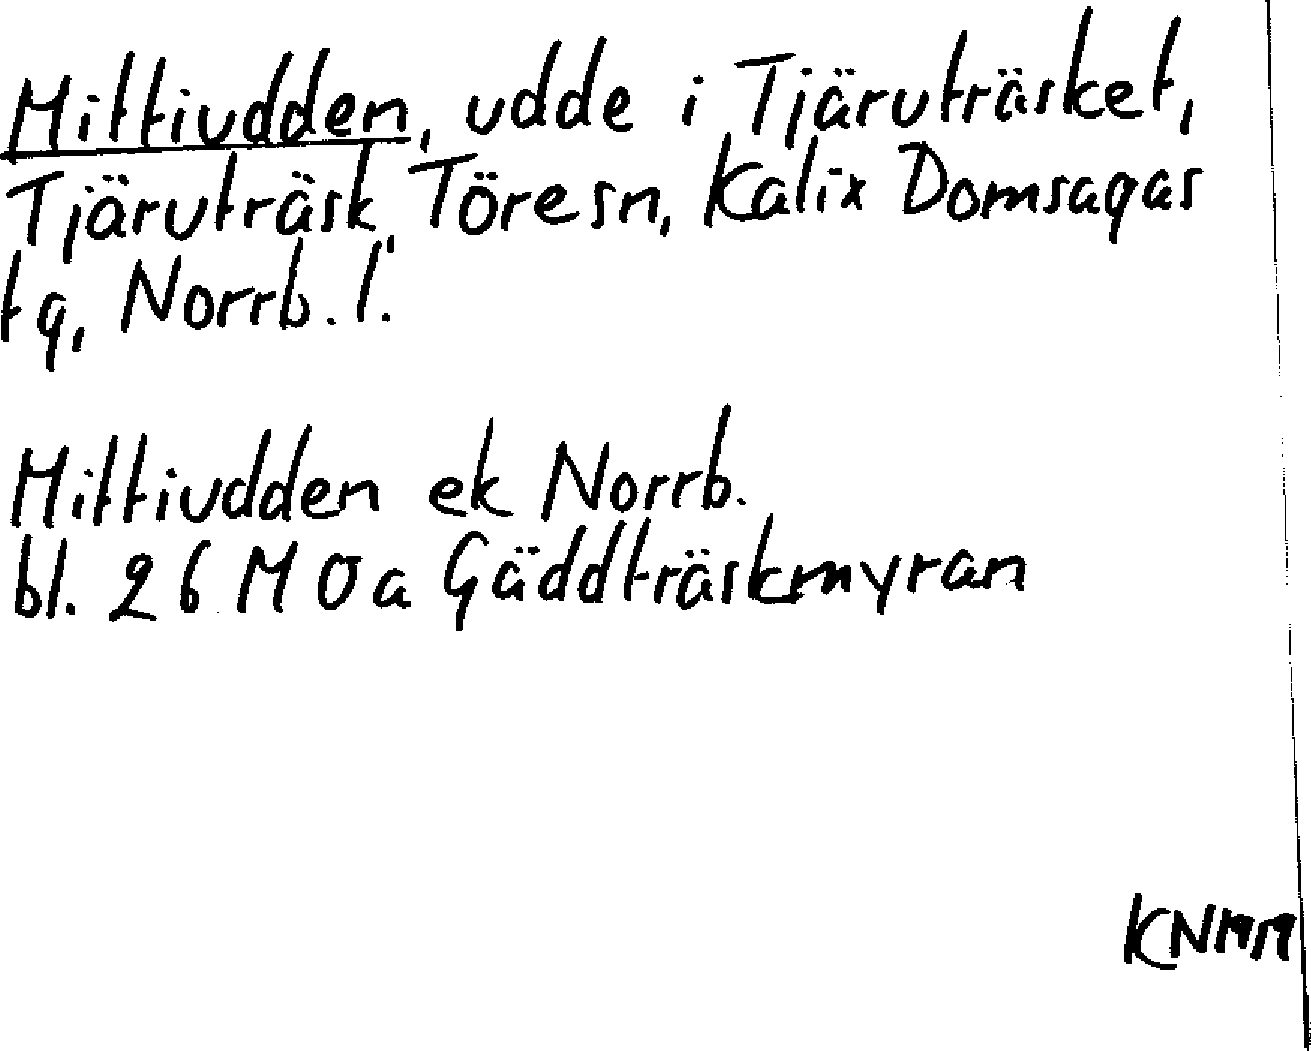 Mittiudden, udde i Tjäruträsket,
Tjäruträsk, Töresn, Kalix Domsagas
tg, Norrb. l.
Mittiudden ek Norrb.
bl. 26 M 0a Gäddträskmyran